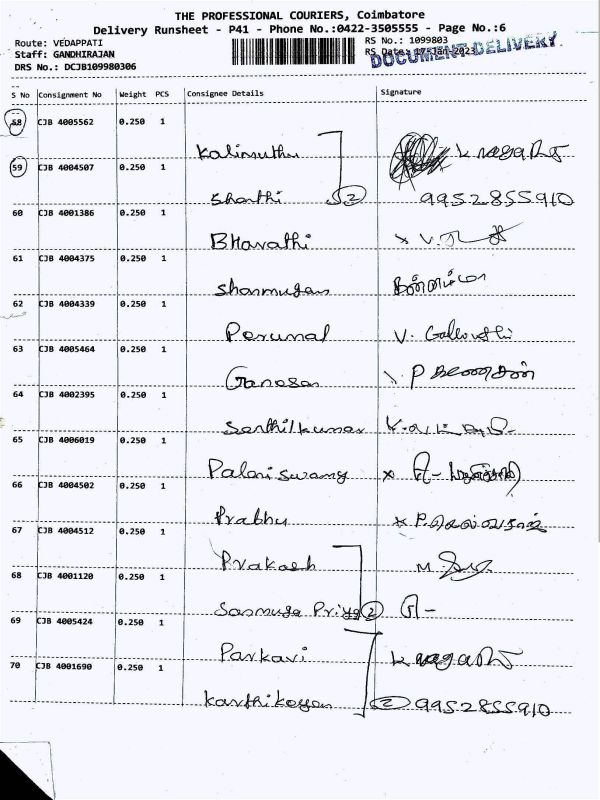 THE PROFESSIONAL COURIERS, Coimbatore
Delivery Runsheet - P41 - Phone No.:0422-3505555 - Page No.:6
Route: VEDAPPATI
RS No.: 1099803
Staff: GANDHIRAJAN
RS Date: 17-Jan-2023
DOCUMENT DELIVERY
DRS No.: DCJB109980306
S No Consignment No Weight PCS Consignee Details Signature
58 CJB 4005562 0.250 1
Kalimuthu K nagaraj
59 CJB 4004507 0.250 1
Shanthi 2 9952855910
60 CJB 4001386 0.250 1
Bharathi
61 CJB 4004375 0.250 1
Shanmugan
62 CJB 4004339 0.250 1
Perumal V.
63 CJB 4005464 0.250 1
Ganesan P கணேசன்
64 CJB 4002395 0.250 1
Senthilkumar
65 CJB 4006019 0.250 1
Palaniswamy
66 CJB 4004502 0.250 1
Prabhu
67 CJB 4004512 0.250 1
Prakash M.
68 CJB 4001120 0.250 1
Sasmuga Priya 2
69 CJB 4005424 0.250 1
Parkavi K nagaraj
70 CJB 4001690 0.250 1
Karthikeyan 2 9952855910